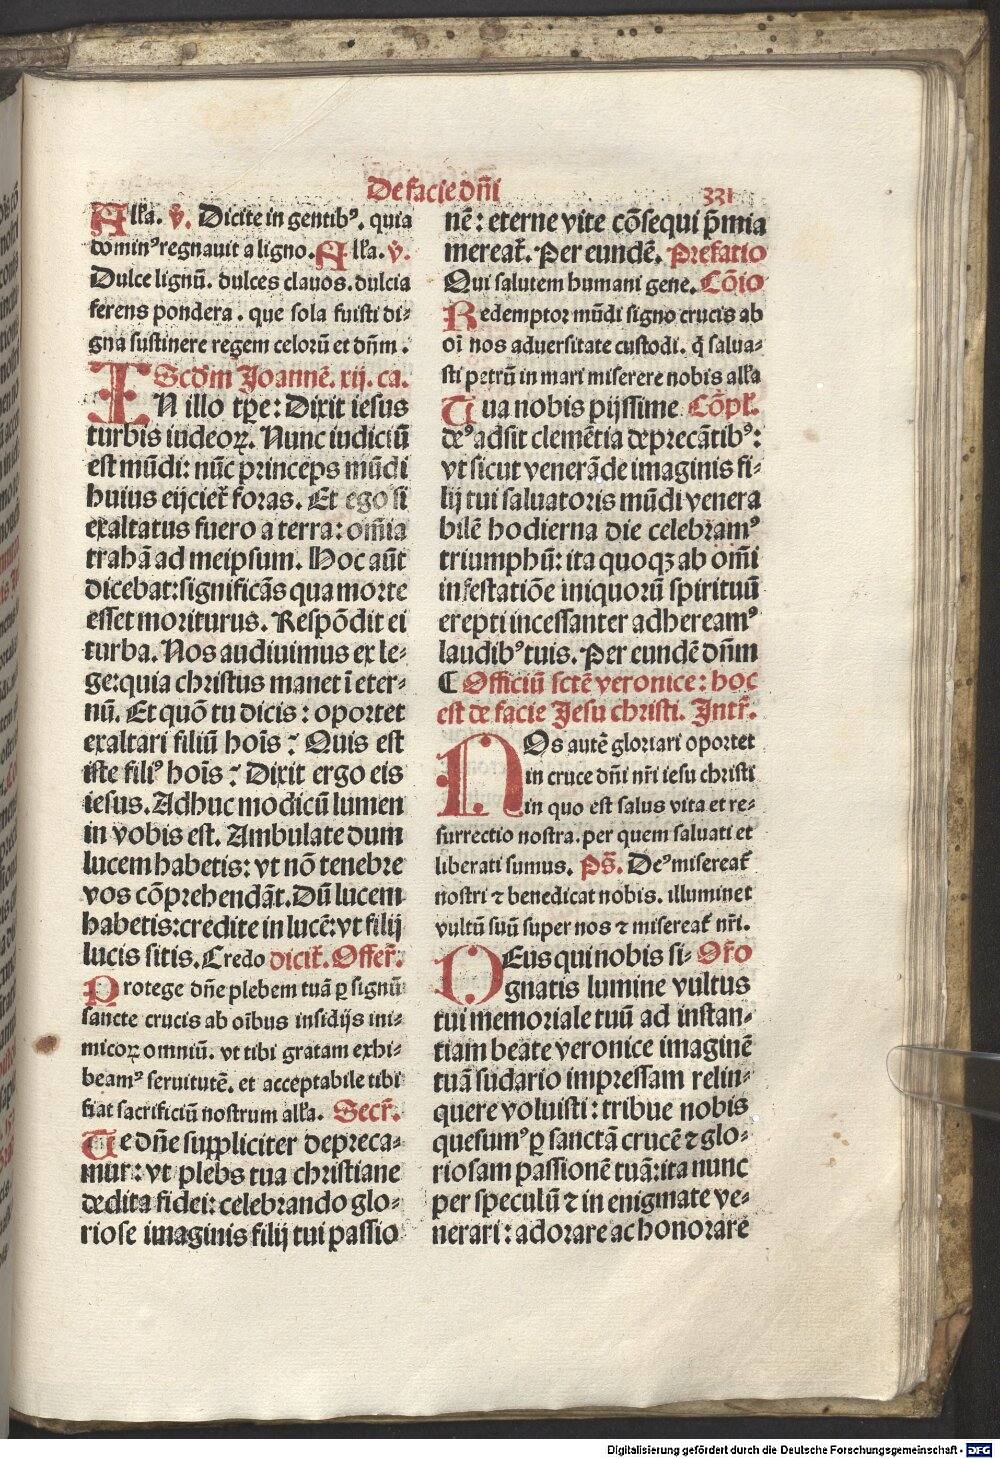 De facie dñi
331
Alľa. ℣. Dicite in gentibꝰ. quia
dominꝰ regnauit a ligno. Alľa. ℣.
Dulce lignũ. dulces clauos. dulcia
ferens pondera. que sola fuisti di-
gna sustinere regem celorũ et dñm.
Scďm Joannẽ. xij. ca.
IN illo tp̃e: Dixit iesus
turbis iudeoꝝ. Nunc iudiciũ
est mũdi: nũc princeps mũdi
huius eijciet̃ foras. Et ego si
exaltatus fuero a terra: om̃ia
trahã ad meipsum. Hoc aũt
dicebat: significãs qua morte
esset moriturus. Respõdit ei
turba. Nos audiuimus ex le-
ge: quia christus manet ĩ eter-
nũ. Et quõ tu dicis: oportet
exaltari filiũ hoĩs? Quis est
iste filiꝰ hoĩs? Dixit ergo eis
iesus. Adhuc modicũ lumen
in vobis est. Ambulate dum
lucem habetis: vt nõ tenebre
vos cõprehendãt. Dũ lucem
habetis: credite in lucẽ: vt filij
lucis sitis. Credo dicit̃. Offer̃.
Protege dñe plebem tuã ꝑ signũ
sancte crucis ab oĩbus insidijs ini-
micoꝝ omniũ. vt tibi gratam exhi-
beamꝰ seruitutẽ. et acceptabile tibi
fiat sacrificiũ nostrum alľa. Secr̃.
Te dñe suppliciter depreca-
mur: vt plebs tua christiane
dedita fidei: celebrando glo-
riose imaginis filij tui passio
nẽ: eterne vite cõsequi p̃mia
mereat̃. Per eundẽ. Prefatio
Qui salutem humani gene. Cõio
Redemptor mũdi signo crucis ab
oĩ nos aduersitate custodi. q̃ salua-
sti petrũ in mari miserere nobis alľa
Tua nobis pijssime Cõpľ.
deꝰ adsit clemẽtia deprecãtibꝰ:
vt sicut venerãde imaginis fi-
lij tui saluatoris mũdi venera
bilẽ hodierna die celebramꝰ
triumphũ: ita quoqꝫ ab om̃i
infestatiõe iniquorũ spirituũ
erepti incessanter adhereamꝰ
laudibꝰ tuis. Per eundẽ dñm
¶ Officiũ sctẽ veronice: hoc
est de facie Jesu christi. Intr̃.
NOs autẽ gloriari oportet
in cruce dñi nr̃i iesu christi
in quo est salus vita et re-
surrectio nostra. per quem saluati et
liberati sumus. Ps̃. Deꝰ misereat̃
nostri ⁊ benedicat nobis. illuminet
vultũ suũ super nos ⁊ misereat̃ nr̃i.
DEus qui nobis si- Or̃o
gnatis lumine vultus
tui memoriale tuũ ad instan-
tiam beate veronice imaginẽ
tuã sudario impressam relin-
quere voluisti: tribue nobis
quesumꝰ ꝑ sanctã crucẽ ⁊ glo-
riosam passionẽ tuã: ita nunc
per speculũ ⁊ in enigmate ve-
nerari: adorare ac honorare
Digitalisierung gefördert durch die Deutsche Forschungsgemeinschaft - DFG